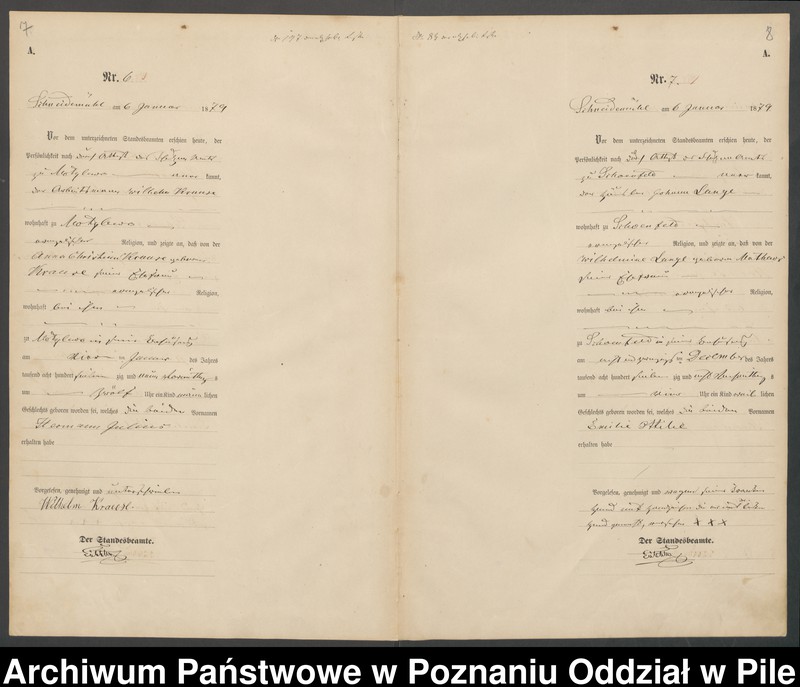 7
A.
Nr. 6
Schneidemühl am 6 Januar 1879
Vor dem unterzeichneten Standesbeamten erschien heute, der
Persönlichkeit nach durch Attest des
zu Motylewo kannt,
der Arbeitsmann Wilhelm Krause
wohnhaft zu Motylewo
evangelischer Religion, und zeigte an, daß von der
Anna Christine Krause geborene
Krause seine Ehefrau
evangelischer Religion,
wohnhaft bei ihm
zu Motylewo in seine Behausung
am vier Januar des Jahres
tausend acht hundert sieben zig und neun Vormittags
um zwölf Uhr ein Kind männlichen
Geschlechts geboren worden sei, welches die beiden Vornamen
Hermann Julius
erhalten habe
Vorgelesen, genehmigt und unterschrieben
Wilhelm Krause
Der Standesbeamte.
8
A.
Nr. 7
Schneidemühl am 6 Januar 1879
Vor dem unterzeichneten Standesbeamten erschien heute, der
Persönlichkeit nach durch Attest des
zu Schoenfeld kannt,
der Häusler Johann Lange
wohnhaft zu Schoenfeld
evangelischer Religion, und zeigte an, daß von der
Wilhelmine Lange geboren
seine Ehefrau
evangelischer Religion,
wohnhaft bei ihm
zu Schoenfeld in seine Behausung
am acht und zwanzigsten December des Jahres
tausend acht hundert sieben zig und acht Nachmittags
um vier Uhr ein Kind weiblichen
Geschlechts geboren worden sei, welches die beiden Vornamen
Emilie
erhalten habe
Vorgelesen, genehmigt und wegen seiner kranken
Hand mit Handzeichen die er mit linker
Hand gemacht, versehen + + +
Der Standesbeamte.
Archiwum Państwowe w Poznaniu Oddział w Pile